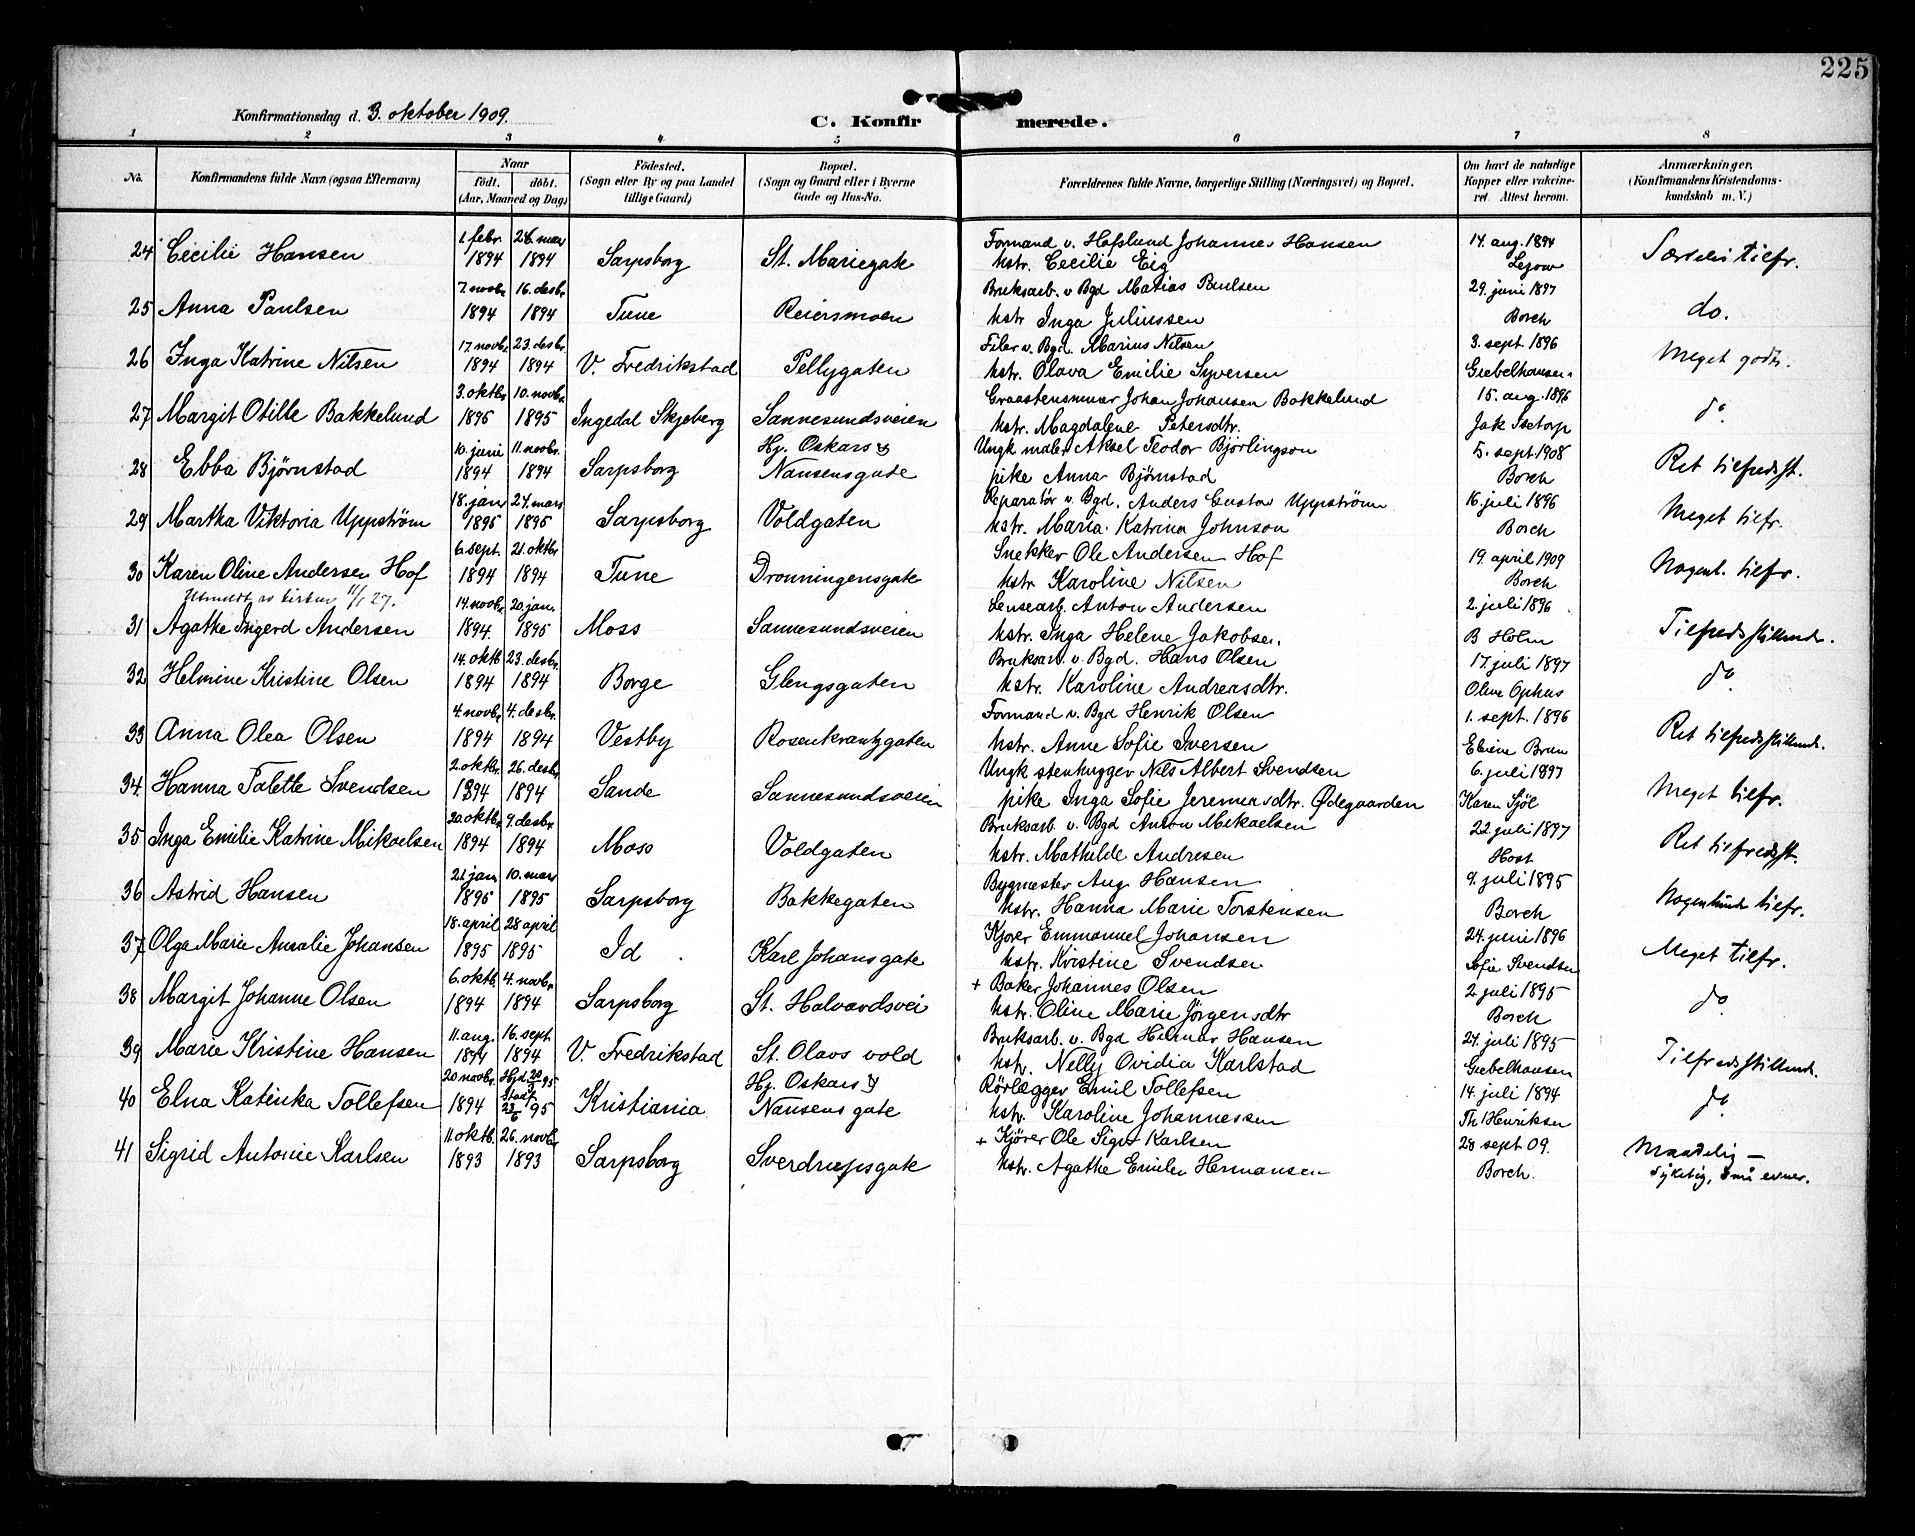 225
Konfirmationsdag d. 3. oktober 1909.
C. Konfirmerede.
1 2 3 4 5 6 7 8
No. Konfirmandens fulde Navn (ogsaa Efternavn) Naar født. døbt. (Aar, Maaned og Dag) Fødested. (Sogn eller By og paa Landet tillige Gaard) Bopæl. (Sogn og Gaard eller i Byerne Gade og Hus-No. Forældrenes fulde Navne, borgerlige Stilling (Næringsvei) og Bopæl. Om havt de naturlige Kopper eller vakcineret. Attest herom. Anmærkninger. (Konfirmandens Kristendomskundskab m. V.)
24 Cecilie Hansen 1. febr. 1894 26. mar 1894 Sarpsborg St. Mariegate Formand v. Hafslund Johannes Hansen
hstr. Cecilie Eig 14. aug. 1894 Særdeles tilfr.
25 Anna Paulsen 7. novbr. 1894 16. desbr. 1894 Tune Reiersmoen Bruksarb. v Bgd Matias Paulsen
hstr Inga Juliussen 29. juni 1897 Borch do.
26 Inga Katrine Nilsen 17 novbr. 1894 23. desbr. 1894 V. Fredrikstad Pellygaten Filer v. Bgd. Marius Nilsen
hstr. Olava Emilie Syversen 3. sept 1896 Giebelhausen Meget godt.
27 Margit Otilie Bakkelund 3. oktbr. 1895 10. novbr. 1895 Ingedal Skjeberg Sannesundsveien Graastensmurer Johan Johansen Bakkelund
hstr. Magdalene Petersdtr. 15. aug 1896 Jak Isetorp do
28 Ebba Bjørnstad 10. juni 1894 11. novbr. 1894 Sarpsborg Hj. Oskars &
Nansensgate Ungk maler Aksel Teodor Bjørlingson
pike Anna Bjørnstad 5. sept. 1908 Borch Ret tilfredsst.
29 Martha Viktoria Uppstrøm 18. jan 1895 24. mars 1895 Sarpsborg Voldgaten Reparatør v. Bgd. Anders Gustav Uppstrøm
hstr. Maria Katrina Johnson 16. juli 1896 Borch Meget tilfr.
30 Karen Oline Andersen Hof 6. sept. 1894 21. oktbr 1894 Tune Dronningensgate Snekker Ole Andersen Hof
hstr Karoline Nilsen 19. april 1909 Borch Nogenl. tilfr.
Utmeldt av kirken 11/1 27.
31 Agathe Ingerd Andersen 14. novbr. 1894. 20. jan. 1895 Moss Sannesundsveien Lensearb. Anton Andersen
hstr. Inga Helene Jakobsen. 2. juli 1896 B Holm Tilfredsstillende.
32 Helmine Kristine Olsen 14. oktb. 1894 23. desbr. 1894 Borge Glengsgaten Bruksarb. v. Bgd. Hans Olsen
hstr. Karoline Andreasdtr. 17. juli 1897 Oline Ophus do
33 Anna Olea Olsen 4. novbr. 1894 4. desbr. 1894 Vestby Rosenkrantzgaten Formand v. Bgd Henrik Olsen
hstr. Anne Sofie Iversen 1. sept. 1896 Ret tilfredsstillende.
34. Hanna Talette Svendsen 2. oktbr. 1894 26. desbr. 1894 Sande Sannesundsveien Ungk stenhugger Nils Albert Svendsen
pike Inga Sofie Jeremiasdtr. Ødegaarden 6. juli 1897 Karen Sjøl Meget tilfr.
35 Inga Emilie Katrine Mikaelsen 20 oktbr. 1894 9. desbr. 1894 Moss Voldgaten Bruksarb. v. Bgd Anton Mikaelsen
hstr. Mathilde Andresen 22 juli 1897 Host Ret tilfredsst.
36 Astrid Hansen 21 jan 1895 10. mars 1895 Sarpsborg Bakkegaten Bygmester Aug Hansen
hstr. Hanna Marie Torstensen 9. juli 1895 Borch Nogenlunde tilfr.
37 Olga Marie Auralie Johansen 18. april 1895 28 april 1895 Id Karl Johans gate Kjører Emmanuel Johansen
hstr. Kristine Svendsen 24. juni 1896 Sofie Svendsen Meget tilfr.
38 Margit Johanne Olsen 6. oktb. 1894 4. novbr. 1894 Sarpsborg St. Halvardsvei + Baker Johannes Olsen
hstr. Oline Marie Jørgensdtr 2 juli 1895 Borch do
39 Marie Kristine Hansen 11. aug. 1894 16. sept 1894 V. Fredrikstad St. Olavs vold Bruksarb. v. Bgd Hilmar Hansen
hstr. Nelly Ovidia Karlstad 24. juli 1895 Giebelhausen Tilfredsstillende.
40 Elna Katinka Tollefsen 20 novbr. 1894 Hjd. 20/1 95 Stadf 23/6 95 Kristiania Hj. Oskars &
Nansens gate Rørlægger Emil Tollefsen
hstr. Karoline Johannessen 14. juli 1894 Th Henriksen do
41 Sigrid Antonie Karlsen 11. oktb. 1893 26. novbr 1893 Sarpsborg Sverdrupsgate + Kjører Ole Sigv Karlsen
hstr. Agathe Emilie Hermansen 28 sept 09. Borch. Maadelig –
sykelig, små evner.